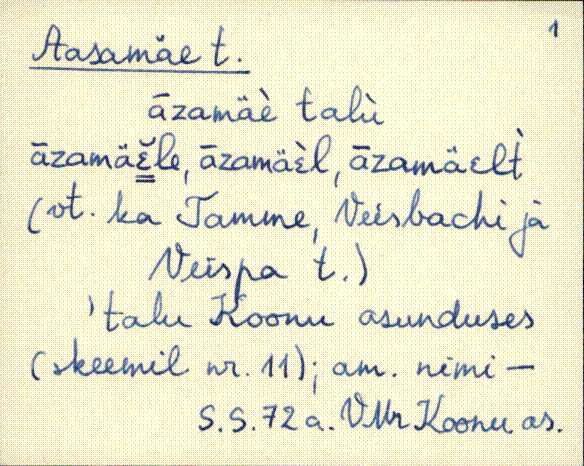 1
Aasamäe t.
āzamäè talù
āzamäɛ̆le, āzamäɛ̀l, āzamäɛlt̀
(vt. ka Tamme, Veisbachi jà
Veispa t.)
'talu Koonu asunduses
(skeemil nr. 11); am. nimi –
S.S. 72 a. VMr Koonu as.